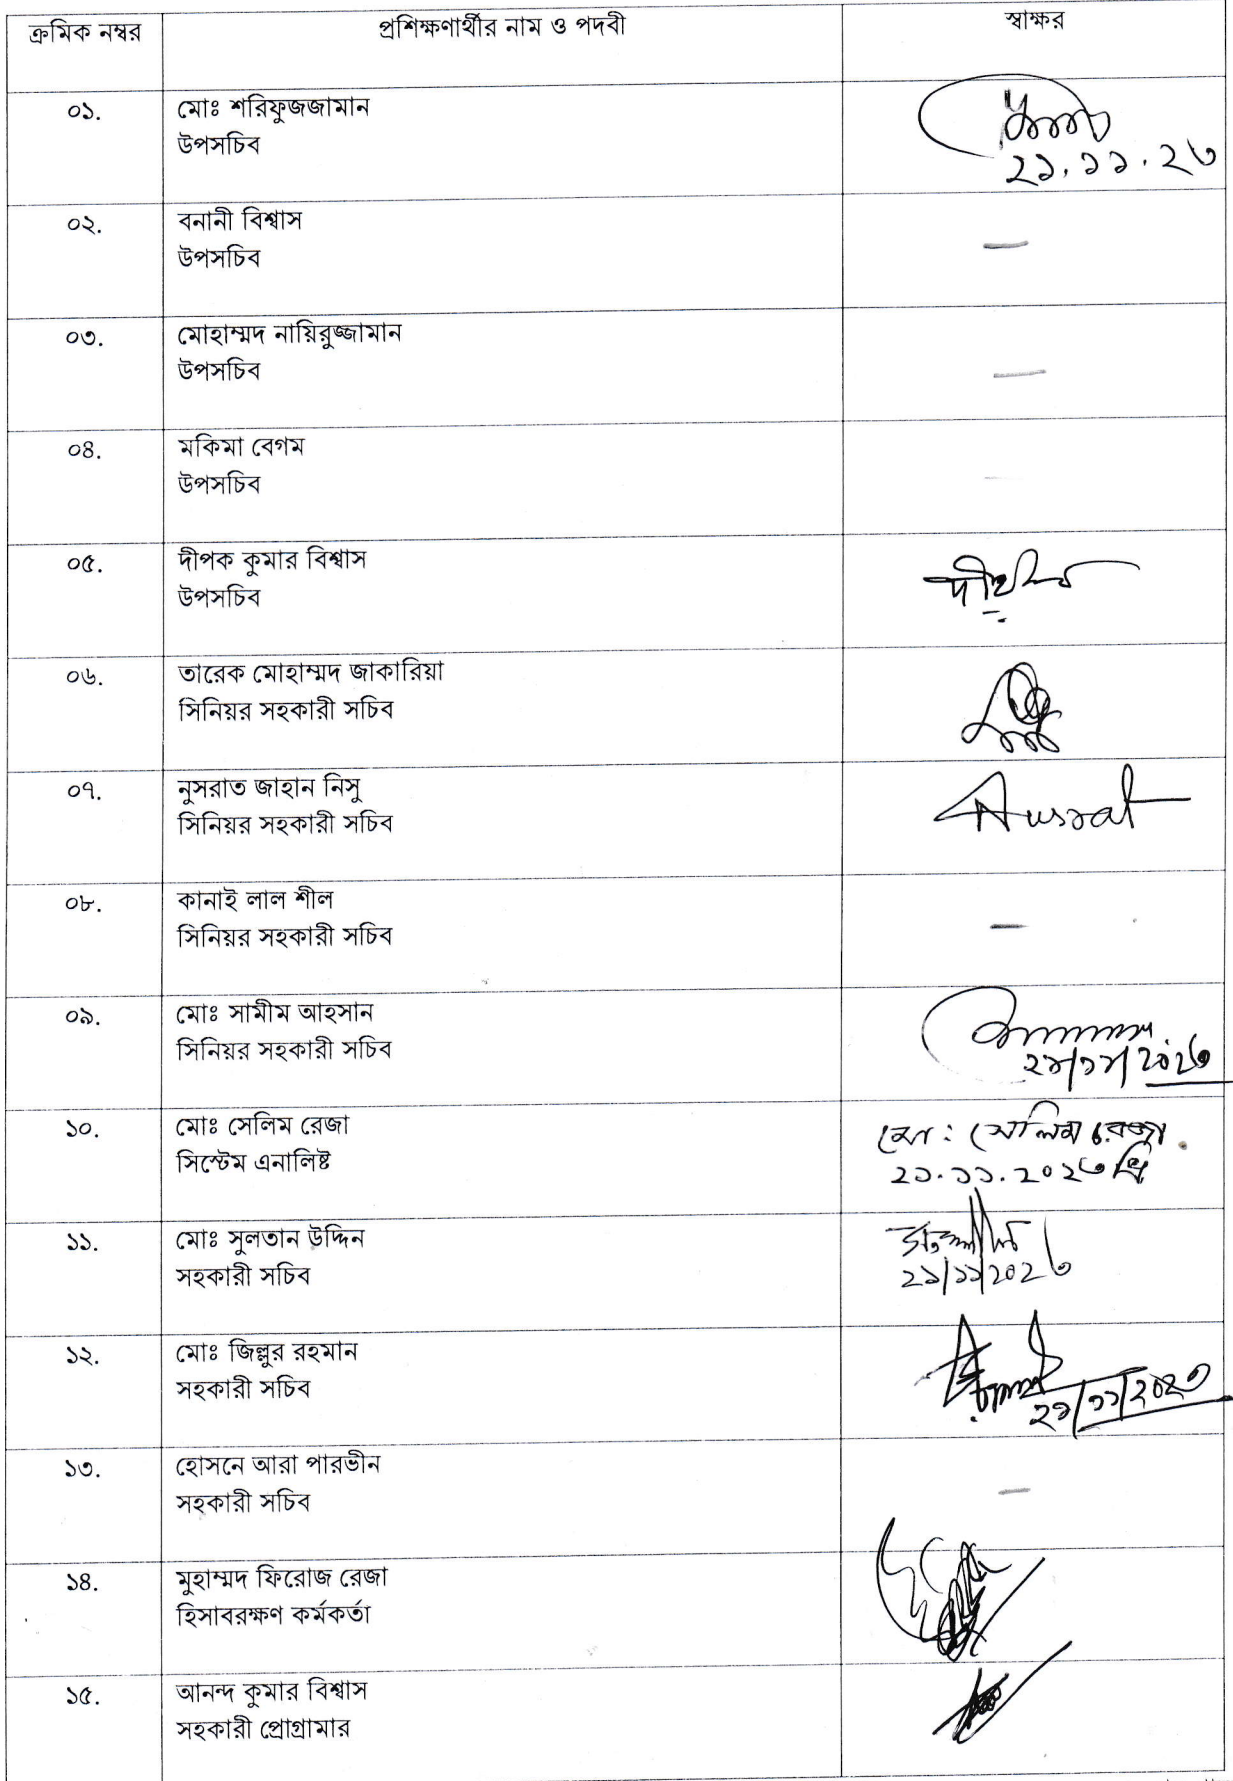 ক্রমিক নম্বর প্রশিক্ষণার্থীর নাম ও পদবী স্বাক্ষর
০১. মোঃ শরিফুজজামান
উপসচিব
২১.১১.২৩
০২. বনানী বিশ্বাস
উপসচিব
০৩. মোহাম্মদ নায়িরুজ্জামান
উপসচিব
০৪. মকিমা বেগম
উপসচিব
০৫. দীপক কুমার বিশ্বাস
উপসচিব
০৬. তারেক মোহাম্মদ জাকারিয়া
সিনিয়র সহকারী সচিব
০৭. নুসরাত জাহান নিসু Nusrat
সিনিয়র সহকারী সচিব
০৮. কানাই লাল শীল
সিনিয়র সহকারী সচিব
০৯. মোঃ সামীম আহসান
সিনিয়র সহকারী সচিব ২১/১১/২০২৩
১০. মোঃ সেলিম রেজা মো: সেলিম রেজা
সিস্টেম এনালিষ্ট ২১.১১.২০২৩ খ্রি
১১. মোঃ সুলতান উদ্দিন
সহকারী সচিব ২১/১১/২০২৩
১২. মোঃ জিল্লুর রহমান
সহকারী সচিব ২১/১১/২০২৩
১৩. হোসনে আরা পারভীন
সহকারী সচিব
১৪. মুহাম্মদ ফিরোজ রেজা
হিসাবরক্ষণ কর্মকর্তা
১৫. আনন্দ কুমার বিশ্বাস
সহকারী প্রোগ্রামার